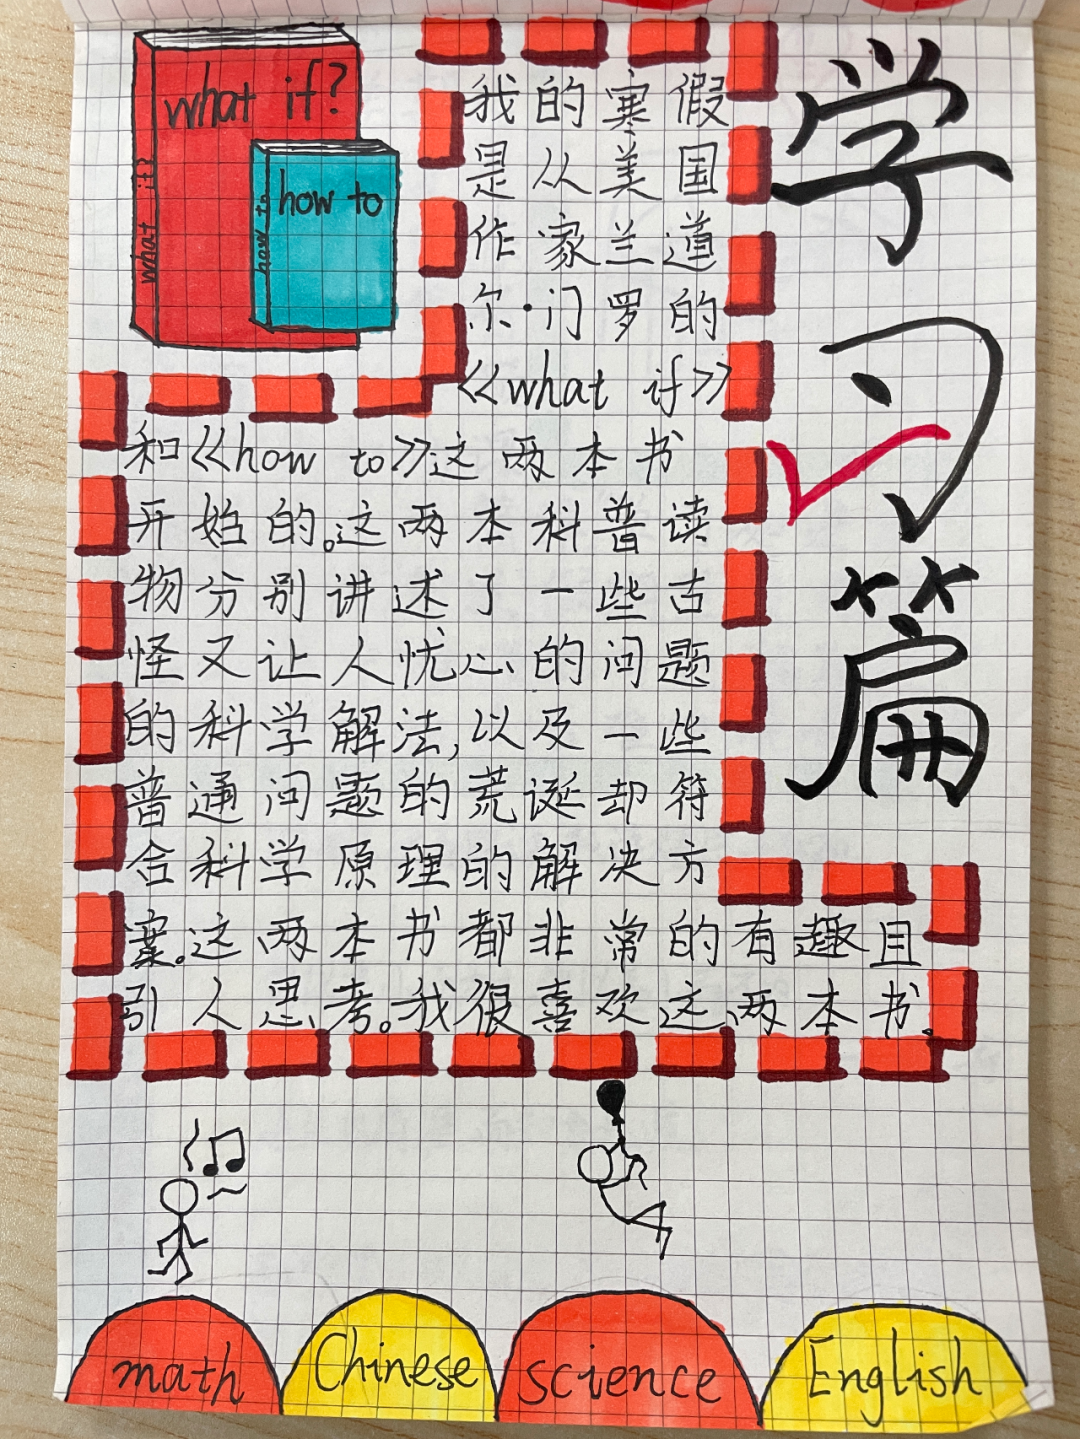 学习篇
what if?
what it?
how to
how to
我的寒假
是从美国
作家兰道
尔·门罗的
《what if》
和《how to》这两本书
开始的。这两本科普读
物分别讲述了一些古
怪又让人忧心的问题
的科学解法,以及一些
普通问题的荒诞却符
合科学原理的解决方
案。这两本书都非常的有趣且
引人思考。我很喜欢这两本书。
math
Chinese
science
English